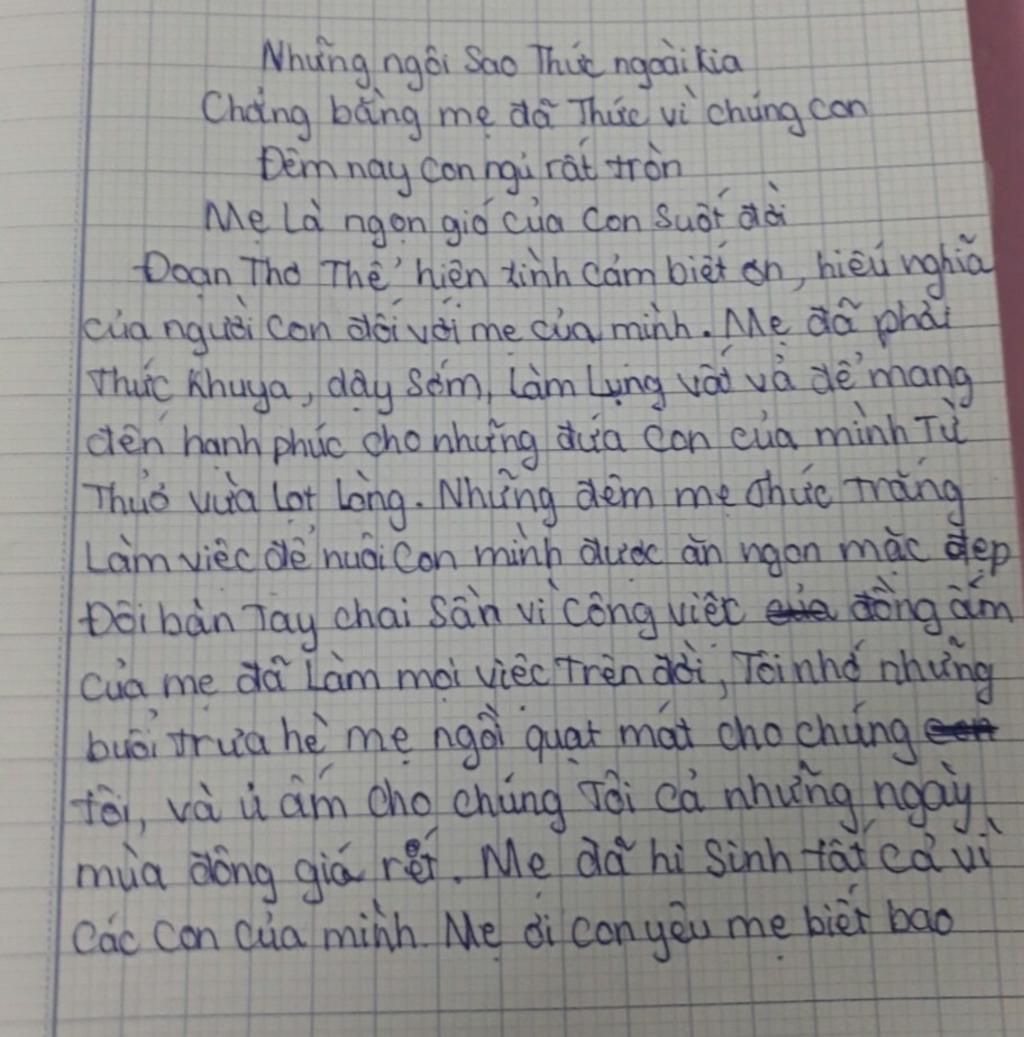 Những ngôi Sao Thức ngoài kia
Chẳng bằng mẹ đã Thức vì chúng con
Đêm nay con ngủ rất tròn
Mẹ Là ngọn gió của Con Suốt đời
Đoạn Thơ Thể hiện tình cảm biết ơn, hiếu nghĩa
của người con đối với mẹ của mình. Mẹ đã phải
Thức Khuya, dậy Sớm, Làm Lụng vất vả để mang
đến hạnh phúc cho những đứa con của mình Từ
Thuở vừa Lọt Lòng. Những đêm mẹ thức Trắng
Làm việc để nuôi Con mình được ăn ngon mặc đẹp
Đôi bàn Tay chai Sần vì công việc đồng áng
của mẹ đã Làm mọi việc Trên đời, Tôi nhớ những
buổi trưa hè mẹ ngồi quạt mát cho chúng
tôi, và ủ ấm cho chúng Tôi cả những ngày
mùa đông giá rét. Mẹ đã hi Sinh tất cả vì
Các con của mình. Mẹ ơi con yêu mẹ biết bao